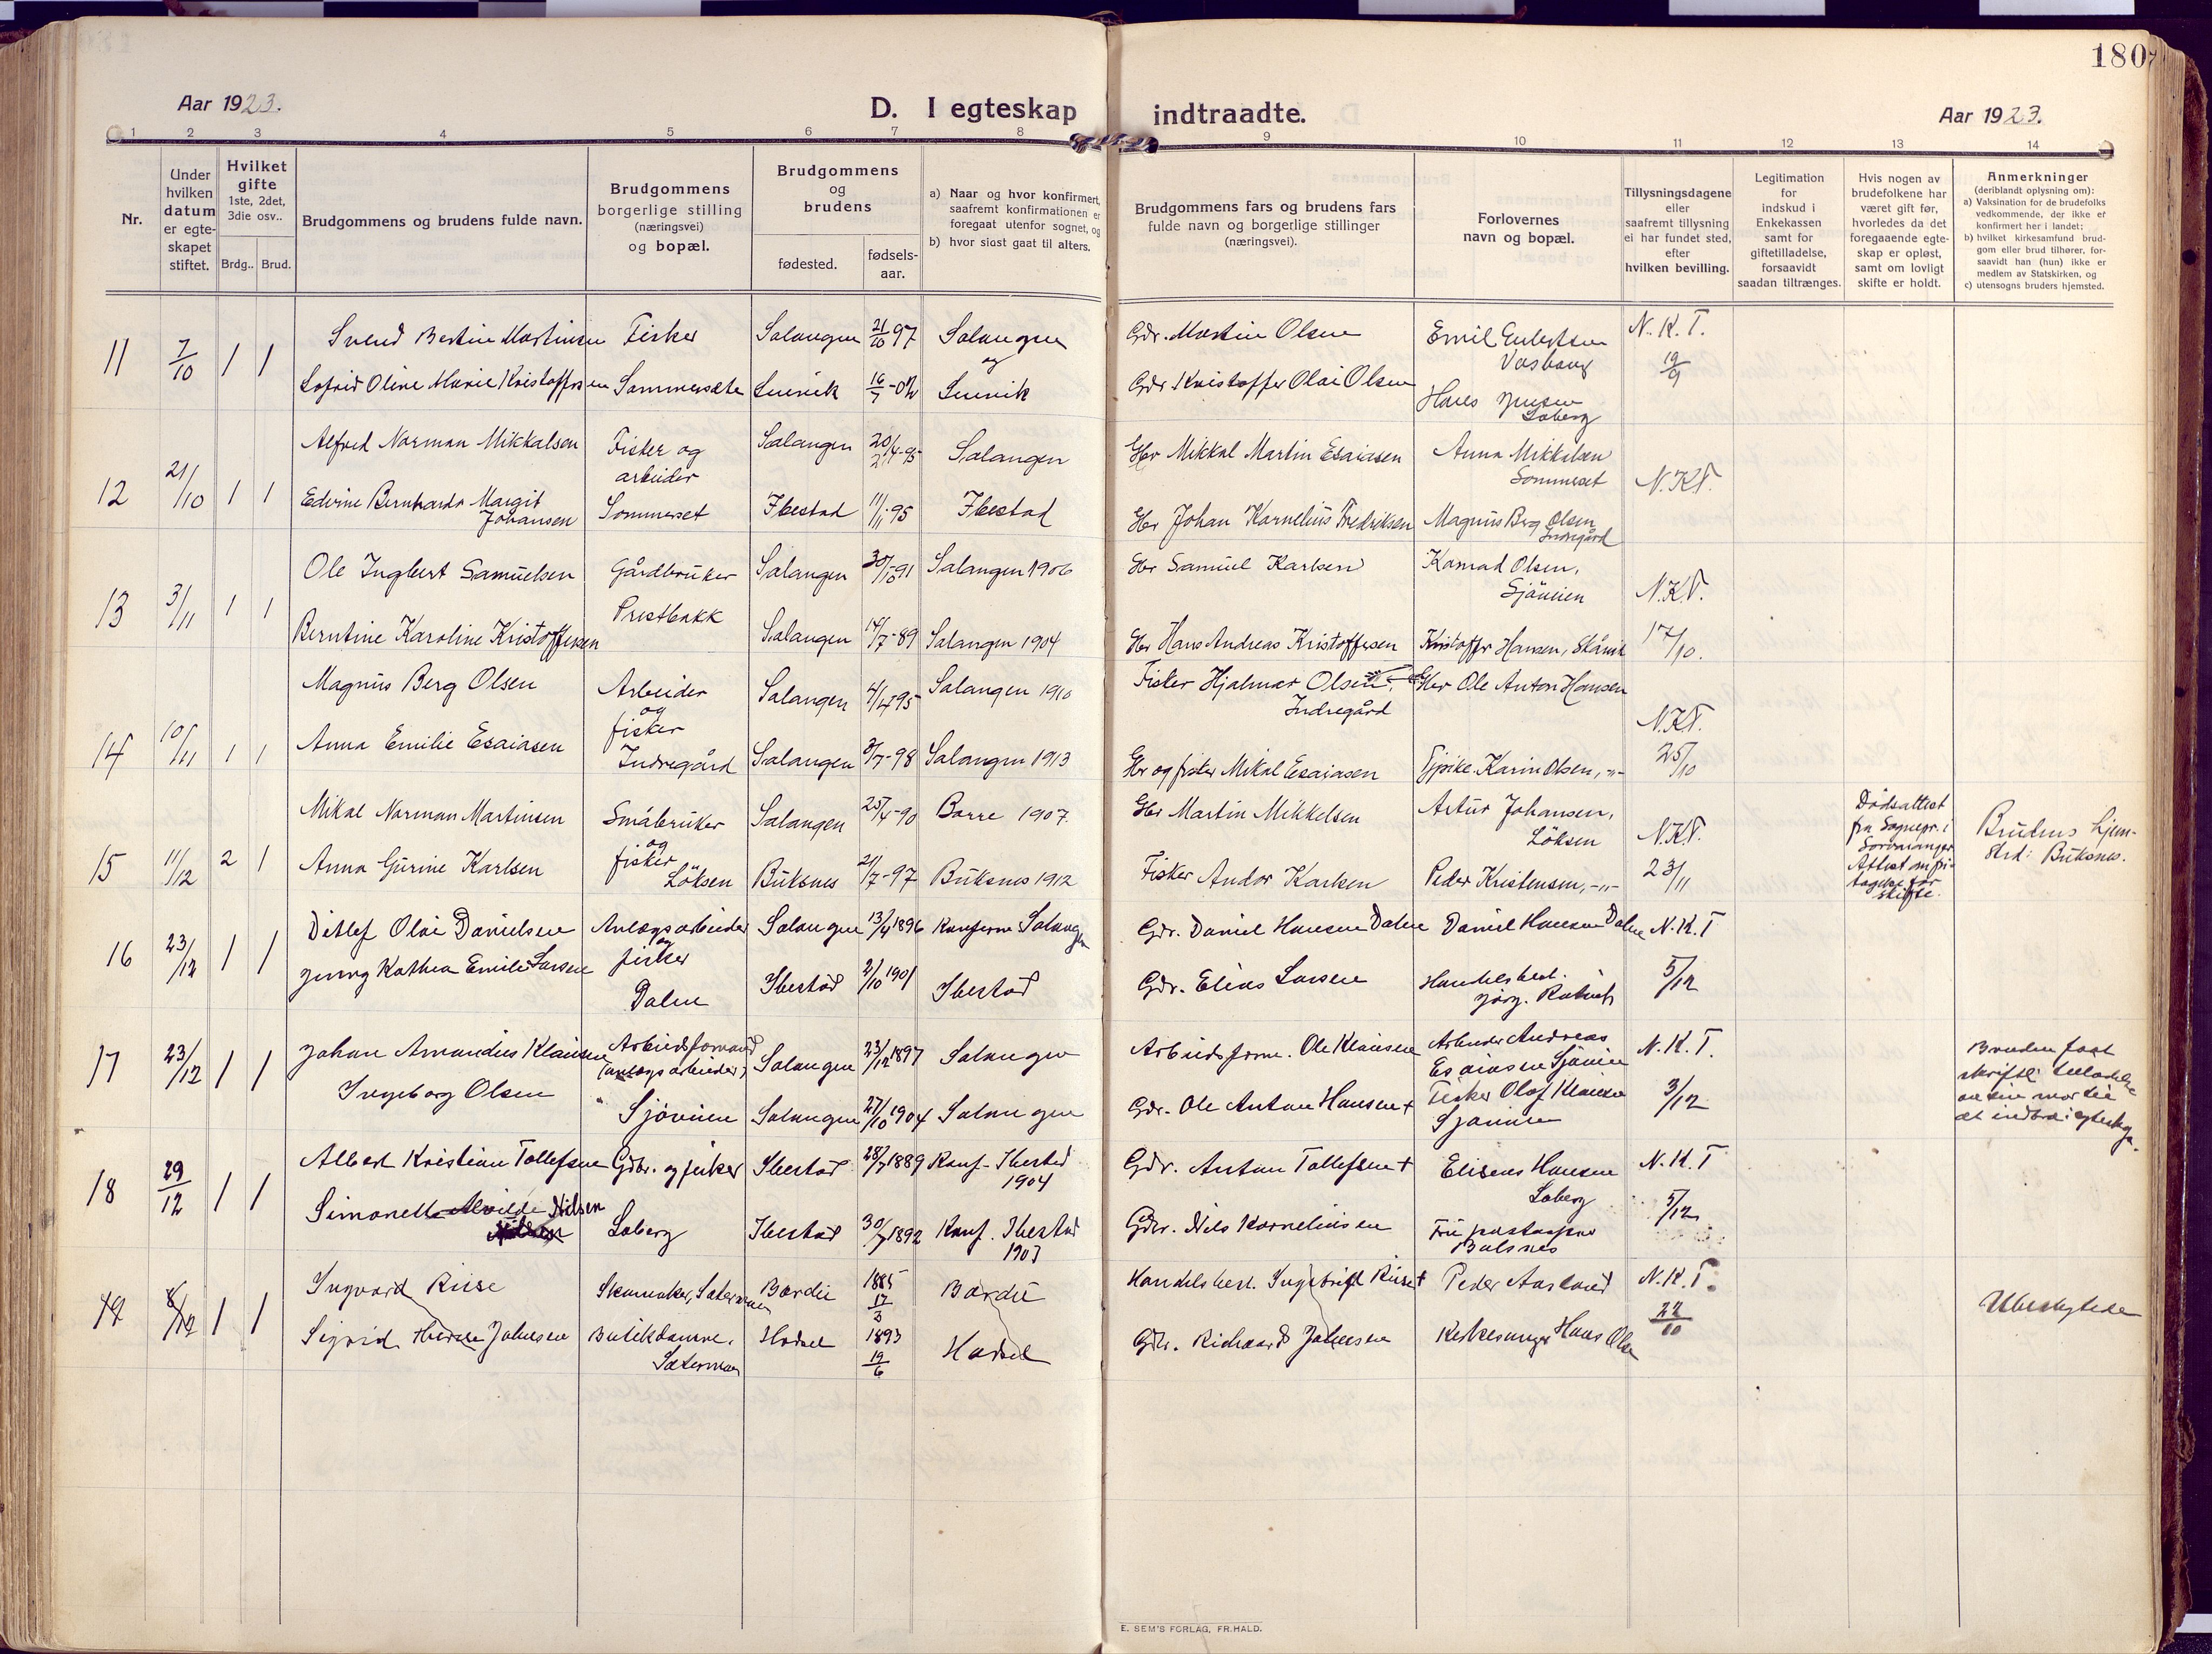 180
Aar 1923.
D. I egteskap indtraadte.
Aar 1923.
1 2 3 4 5 6 7 8 9 10 11 12 13 14
Nr.
Under hvilken datum er egte-skapet stiftet.
Hvilket gifte 1ste, 2det, 3die osv..
Brdg.. Brud.
Brudgommens og brudens fulde navn.
Brudgommens borgerlige stilling (næringsvei) og bopæl.
Brudgommens og brudens
fødested.
fødsels-aar.
a) Naar og hvor konfirmert, saafremt konfirmationen er foregaat utenfor sognet, og
b) hvor sidst gaat til alters.
Brudgommens fars og brudens fars fulde navn og borgerlige stillinger (næringsvei).
Forlovernes navn og bopæl.
Tillysningsdagene eller saafremt tillysning ei har fundet sted, efter hvilken bevilling.
Legitimation for indskud i Enkekassen samt for giftetilladelse, forsaavidt saadan tiltrænges.
Hvis nogen av brudefolkene har været gift før, hvorledes da det foregaaende egte-skap er opløst, samt om lovligt skifte er holdt.
Anmerkninger
(deriblandt oplysning om):
a) Vaksination for de brudefolks vedkommende, der ikke er konfirmert her i landet:
b) hvilket kirkesamfund brud-gom eller brud tilhører, for-saavidt han (hun) ikke er medlem av Statskirken, og
c) utensogns bruders hjemsted.
11 7/10 1 1
Svend Bertin Martinsen Fisker Salangen 21/10 97 Salangen
og
Gdr. Martin Olsen
Vashaug
N.K.T.
19/9
Oline Marie Kristoffersen 16/7-02
Gdr Kristoffer Olai Olsen
Hans Jensen
Løberg
12 21/10 1 1
Alfred Norman Mikkalsen Fisker og Salangen Salangen
arbeider
Gbr Mikkal Martin Esaiasen Anna Mikkalsen
Sommerset N.K.T.
Edvine Bernharda Margit
Johansen Sommerset Ibestad 11/11-95 Ibestad
Gbr Johan Kornelius Fredriksen Magnus Berg Olsen
Indregård
13 3/11 1 1
Ole Ingbert Samuelsen Gårdbruker Salangen 30/10-91 Salangen 1906
Gbr Samuel Karlsen Konrad Olsen,
Sjøveien N.K.T.
Prestbakk
Berntine Karoline Kristoffersen Salangen 14/7-89 Salangen 1904
Gbr Hans Andreas Kristoffersen Kristoffer Hansen, Skårvik 17/10.
14 10/11 1 1
Magnus Berg Olsen Arbeider Salangen 4/4-95 Salangen 1910
og
fisker
Fisker Hjalmar Olsen,
Indregård
Gbr Ole Anton Hansen
N.K.T.
Anna Emilie Esaiasen Indregård Salangen 3/7-98 Salangen 1913
Gbr og fisker Mikal Esaiasen Karin Olsen, -"- 25/10
15 11/12 2 1
Mikal Norman Martinsen Småbruker Salangen 25/4-90 Borre 1907
og
fisker
Gbr Martin Mikkelsen Artur Johansen,
Løksen N.K.T.
Dødsattest
fra Sognepr. i
Sørvranger
Attest om fri-
tagelse for
skifte.
Brudens hjem-
sted: Buksnes.
Anna Gurine Karlsen Løksen Buksnes 21/7-97 Buksnes 1912
Fisker Andor Karlsen Peder Kristensen, -"- 23/11
16 23/12 1 1
Ditlef Olai Danielsen Anlægsarbeider Salangen 13/4 1896 Salangen
og
fisker
Dalen
Gdr. Daniel Hansen Dalen Daniel Hansen Dalen N.K.T
Jenny Kathea Emilie Larsen Ibestad 2/10 1901 Ibestad
Gdr. Elias Larsen Handelsbest.
5/12
17 23/12 1 1
Johan Amandus Klausen Arbeidsformand
(anlægsarbeider) Salangen 23/12 1897 Salangen
Arbeidsform. Ole Klausen Arbeider Andreas
Esaiasen Sjøveien N.K.T.
Ingeborg Olsen Sjøveien Salangen 27/10 1904 Salangen
Gdr. Ole Anton Hansen + Fisker Olaf Klausen
Sjøveien 3/12
Bruden faat
skriftl. tilladelse
av sin mor til
at indtræ i egteskap.
18 29/12 1 1
Albert Kristian Tollefsen Gdbr. og fisker Ibestad 28/7 1889 Konf. Ibestad
1904
Gdr. Anton Tollefsen + Eliseus Hansen
Løberg N.K.T
Simonelle Alvilde Nilsen Løberg Ibestad 30/7 1892 Konf. Ibestad
1907
Gdr. Nils Korneliussen
Balsnes 5/12
19 1 1
Ingvard Ruse Skomaker, Bardu 1885 17/3 Bardu
Handelsbest. Peder Aasland N.K.T.
22/10
Sigrid Johnsen Butikdame, Hadsel 1893 19/6 Hadsel
Gdr. Richard Johnsen Kirkesanger Hans Olsen
Ubenyttede
E. SEM'S FORLAG, FR.HALD.